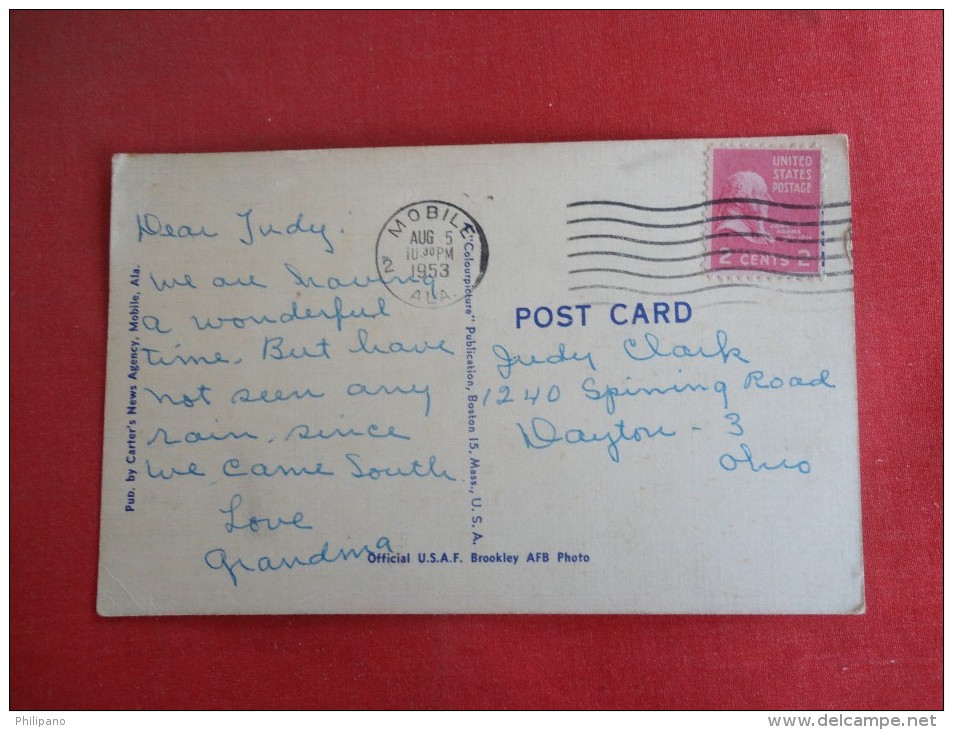 Dear Judy.
We are having
a wonderful
time. But have
not seen any
rain, since
we came South
Love
Grandma
Pub. by Carter's News Agency, Mobile, Ala.
MOBILE
AUG 5
10 30 PM
1953
2
ALA.
"Colourpicture" Publication, Boston 15, Mass., U. S. A.
UNITED
STATES
POSTAGE
JOHN
ADAMS
2 CENTS 2
POST CARD
Judy Clark
1240 Spining Road
Dayton - 3
Ohio
Official U.S.A.F. Brookley AFB Photo
Philipano
www.delcampe.net